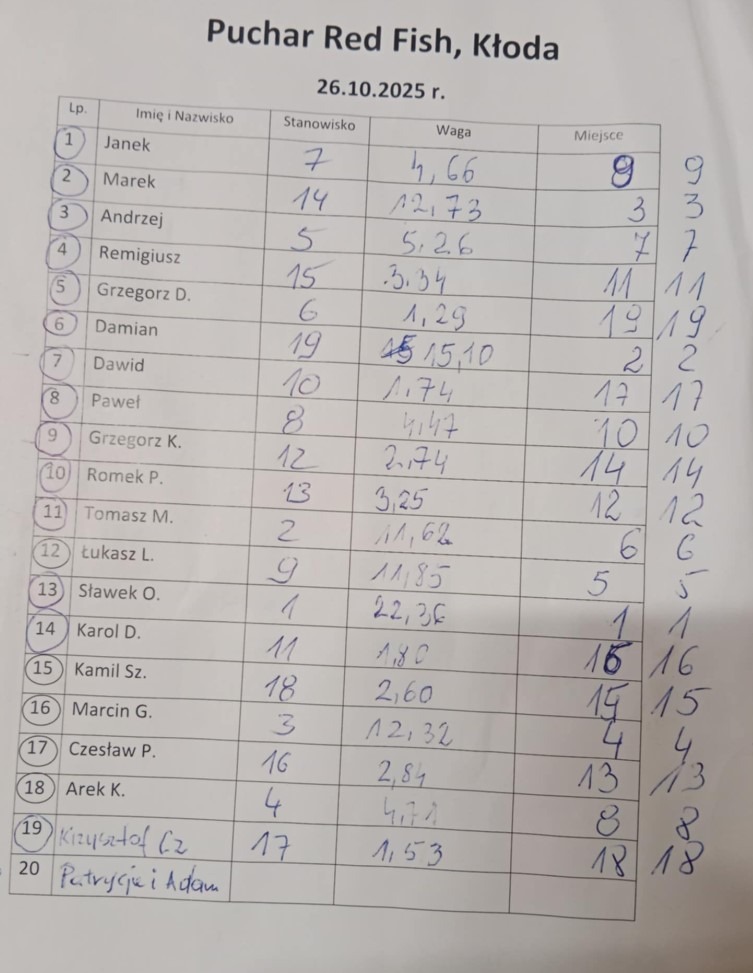 Puchar Red Fish, Kłoda
26.10.2025 r.
Lp. Imię i Nazwisko Stanowisko Waga Miejsce
1 Janek 7 4,66 9 9
2 Marek 14 12,73 3 3
3 Andrzej 5 5,26 7 7
4 Remigiusz 15 3.34 11 11
5 Grzegorz D. 6 1,29 19 19
6 Damian 19 15,10 2 2
7 Dawid 10 1,74 17 17
8 Paweł 8 4,47 10 10
9 Grzegorz K. 12 2,74 14 14
10 Romek P. 13 3,25 12 12
11 Tomasz M. 2 11,62 6 6
12 Łukasz L. 9 11,85 5 5
13 Sławek O. 1 22,36 1 1
14 Karol D. 11 1,80 16 16
15 Kamil Sz. 18 2,60 15 15
16 Marcin G. 3 12,32 4 4
17 Czesław P. 16 2,84 13 13
18 Arek K. 4 4,71 8 8
19 Krzysztof Cz 17 1,53 18 18
20 Patrycja i Adam